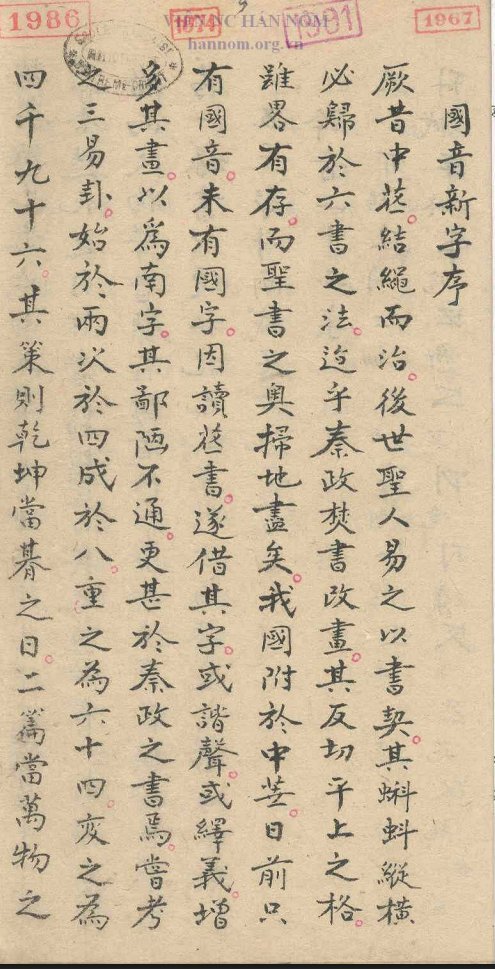 1986
1981
1967
VIỆN NC HÁN NÔM
hannom.org.vn
國音新字序
厥昔中花。結繩而治。後世聖人易之以書契。其蝌蚪縱橫
必歸於六書之法。迨乎秦政焚書改畫。其反切平上之格。
雖畧有存。而聖書之奧掃地盡矣。我國附於中花。日前只
有國音。未有國字。因讀花書。遂借其字。或諧聲。或繹義。增
多其畫。以爲南字。其鄙陋不通。更甚於秦政之書焉。嘗考
之三易卦。始於兩次於四成於八。重之為六十四。変之為
四千九十六。其策則乾坤當朞之日。二篇當萬物之